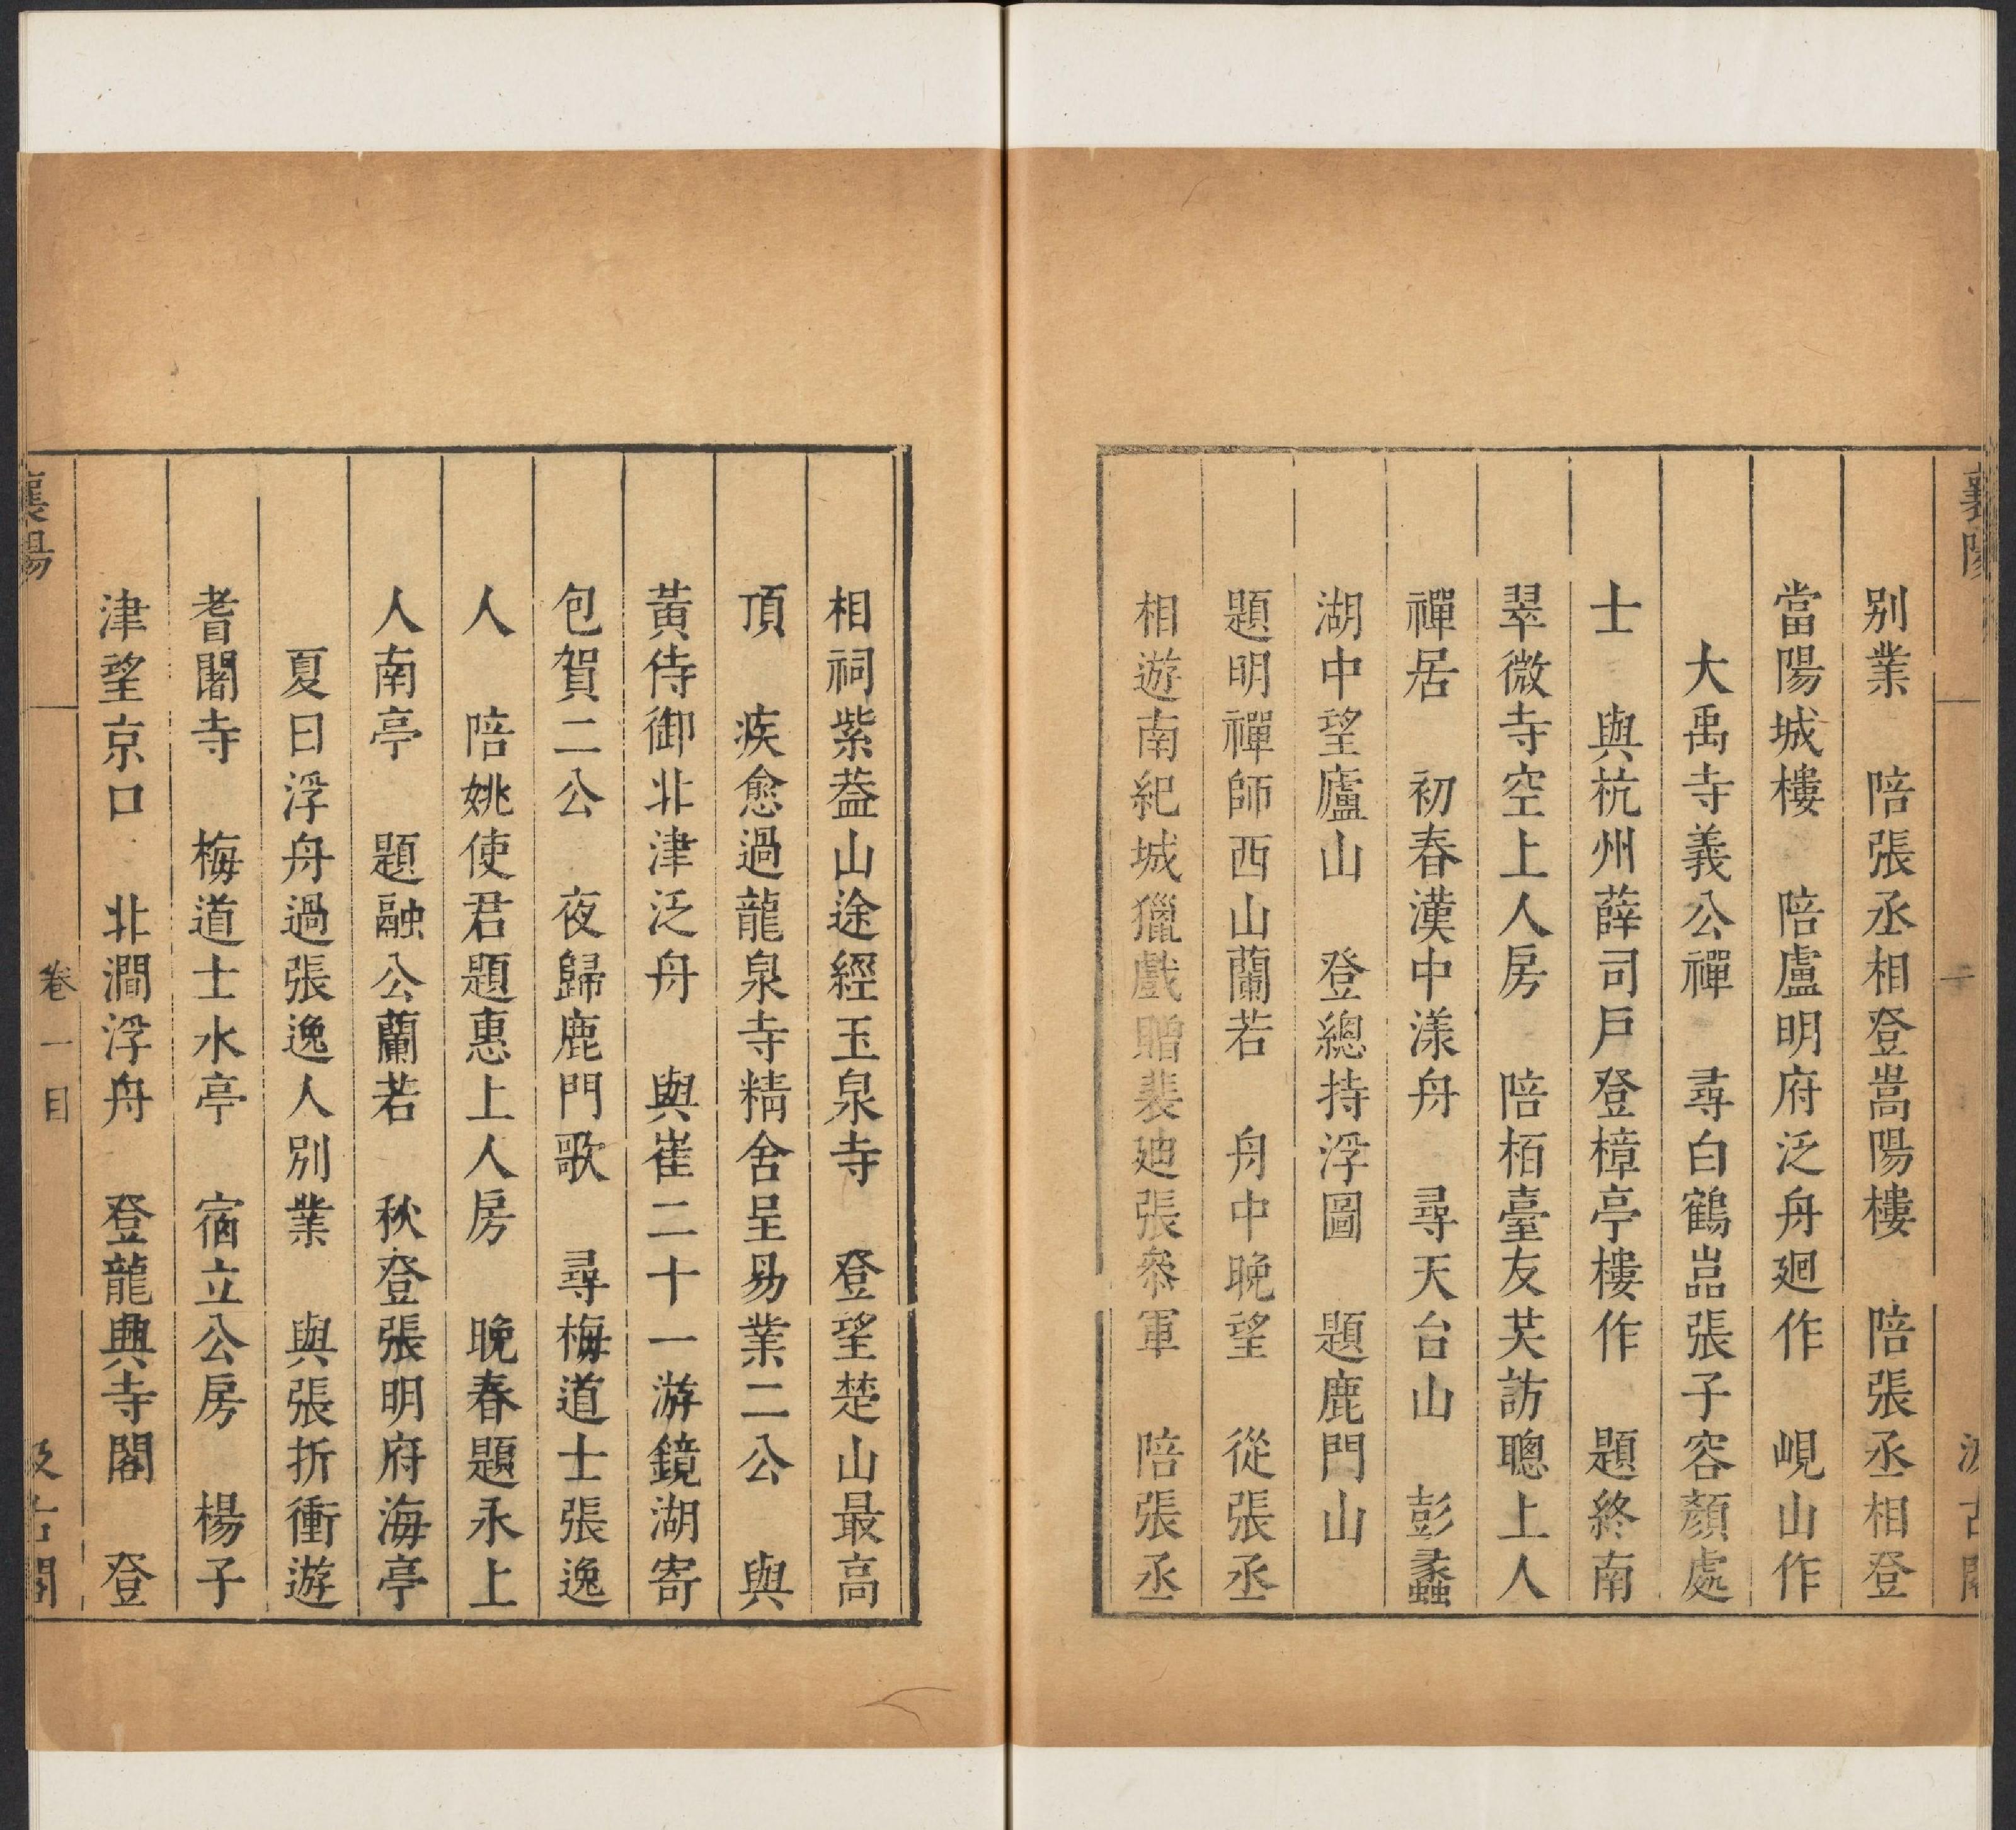 别業　陪張丞相登嵩陽樓　陪張丞相登
當陽城樓　陪盧明府泛舟迴作　峴山作
大禹寺義公禪　尋白鶴嵓張子容顏處
士　與杭州薛司戶登樟亭樓作　題終南
翠微寺空上人房　陪栢臺友共訪聰上人
禪居　初春漢中漾舟　尋天台山　彭蠡
湖中望廬山　登總持浮圖　題鹿門山
題明禪師西山蘭若　舟中晚望　從張丞
相遊南紀城獵戲贈裴廸張叅軍　陪張丞
相祠紫葢山途經玉泉寺　登望楚山最高
頂　疾愈過龍泉寺精舍呈易業二公　與
黃侍御北津泛舟　與崔二十一游鏡湖寄
包賀二公　夜歸鹿門歌　尋梅道士張逸
人　陪姚使君題惠上人房　晚春題永上
人南亭　題融公蘭若　秋登張明府海亭
夏日浮舟過張逸人別業　與張折衝遊
耆闍寺　梅道士水亭　宿立公房　楊子
津望京口　北澗浮舟　登龍興寺閣　登
襄陽　卷一目　汲古閣